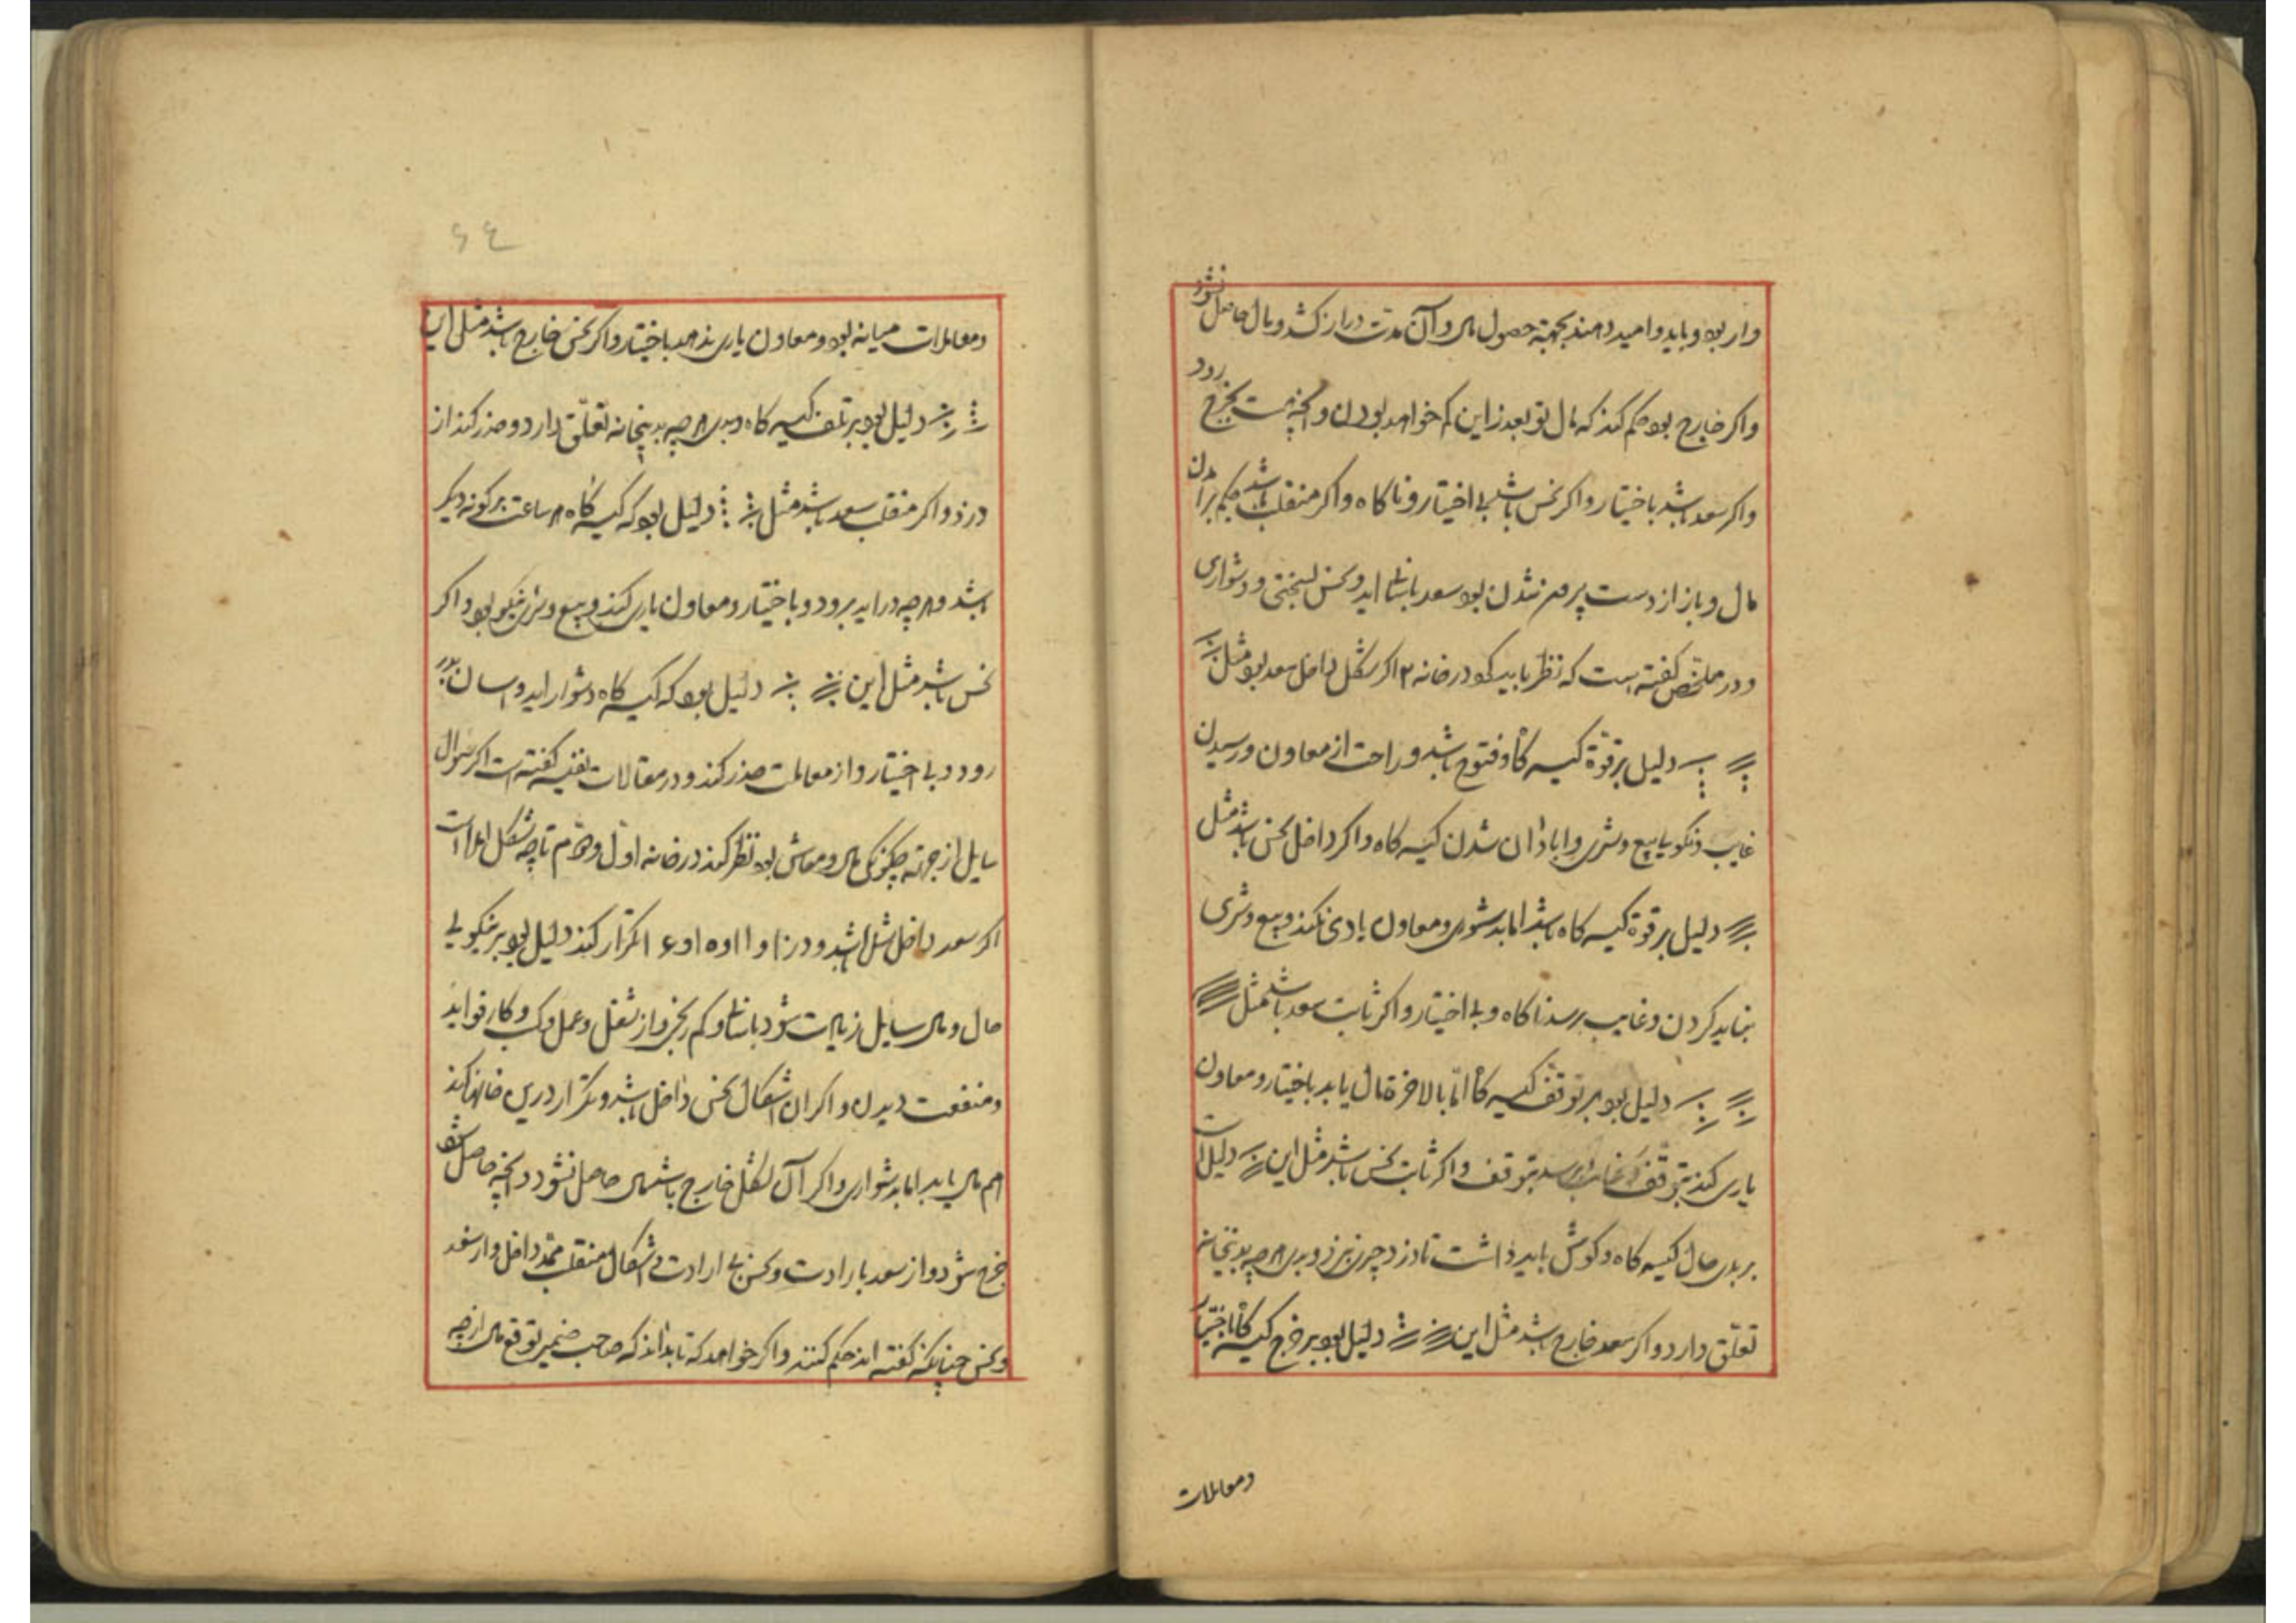 وار بود و باید و امید دهند بجهة حصول مال و آن مدت دراز کشد و مال حاصل نشود
واکر خارج بود حکم کند که مال تو بعد ازاین کم خواهد بودن و آنچه هست بخرج رود
واکر سعد باشد باختیار واکر نحس باشد بی اختیار و ناکاه واکر منقلب باشد حکم بر آمدن
مال و باز از دست بدر شدن بود سعد باسانی اید و نحس بسختی و دشواری
و در ملخص کفته است که نظر باید کرد در خانه ۲ اکر شکل داخل سعد بود مثل
دلیل بر قوة کیسه کاه و فتوح باشد و راحت از معاون و رسیدن
غایب و نیکویی بیع و شری و ابادان شدن کیسه کاه واکر داخل نحس باشد مثل
دلیل بر قوة کیسه کاه باشد اما بدشواری و معاون یاری نکند و بیع و شری
نباید کردن و غایب برسد ناکاه و بی اختیار واکر ثابت سعد باشد مثل
دلیل بود بر توقف کیسه کاه اما بالاخرة مال یابد باختیار و معاون
یاری کند بتوقف و غایب برسد بتوقف واکر ثابت نحس باشد مثل این دلیل است
بر بدی حال کیسه کاه و کوش باید داشت تا دزد چیزی نبرد و بدی هرچه بدینخانه
تعلق دارد واکر سعد خارج باشد مثل این دلیل بود بر خرج کیسه کاه باختیار
ومعاملات
۶۴
ومعاملات میانه بود و معاون یاری ندهد باختیار واکر نحس خارج باشد مثل این
دلیل بود بر تلف کیسه کاه و بدی هرچه بدینخانه تعلق دارد و حذر کند از
دزد واکر منقلب سعد باشد مثل دلیل بود که کیسه کاه هر ساعت بر کونه دیکر
باشد و هرچه دراید برود و باختیار و معاون یاری کند و بیع و شری نیکو بود واکر
نحس باشد مثل این دلیل بود که کیسه کاه دشوار اید و اسان بدر
رود و بی اختیار و از معاملت حذر کند و در مقالات کفته است اکر سوال
سایل از جهة چکونکی مال و معاش بود نظر کند در خانه اول و دوم تا چه شکل امده است
اکر سعد داخل باشد و در ۱۰ و ۱۱ و ۱۵ و ۱۶ تکرار کند دلیل بود بر نیکویی
حال و مال سایل زیادت شود باسانی و کم رنجی و از شغل و عمل و کسب و کار فواید
و منفعت دیدن واکر ان اشکال نحس داخل باشد و تکرار درین خانها کند
هم مال یابد اما بدشواری واکر آن شکل خارج باشد مال حاصل نشود و آنچه حاصل شود
خرج شود و از سعد بارادت و نحس بی ارادت و اشکال منقلب داخل و از سعد
و نحس چنانکه کفته اند حکم کنند واکر خواهد که تا بداند که صاحب ضمیر توقع مال از چه